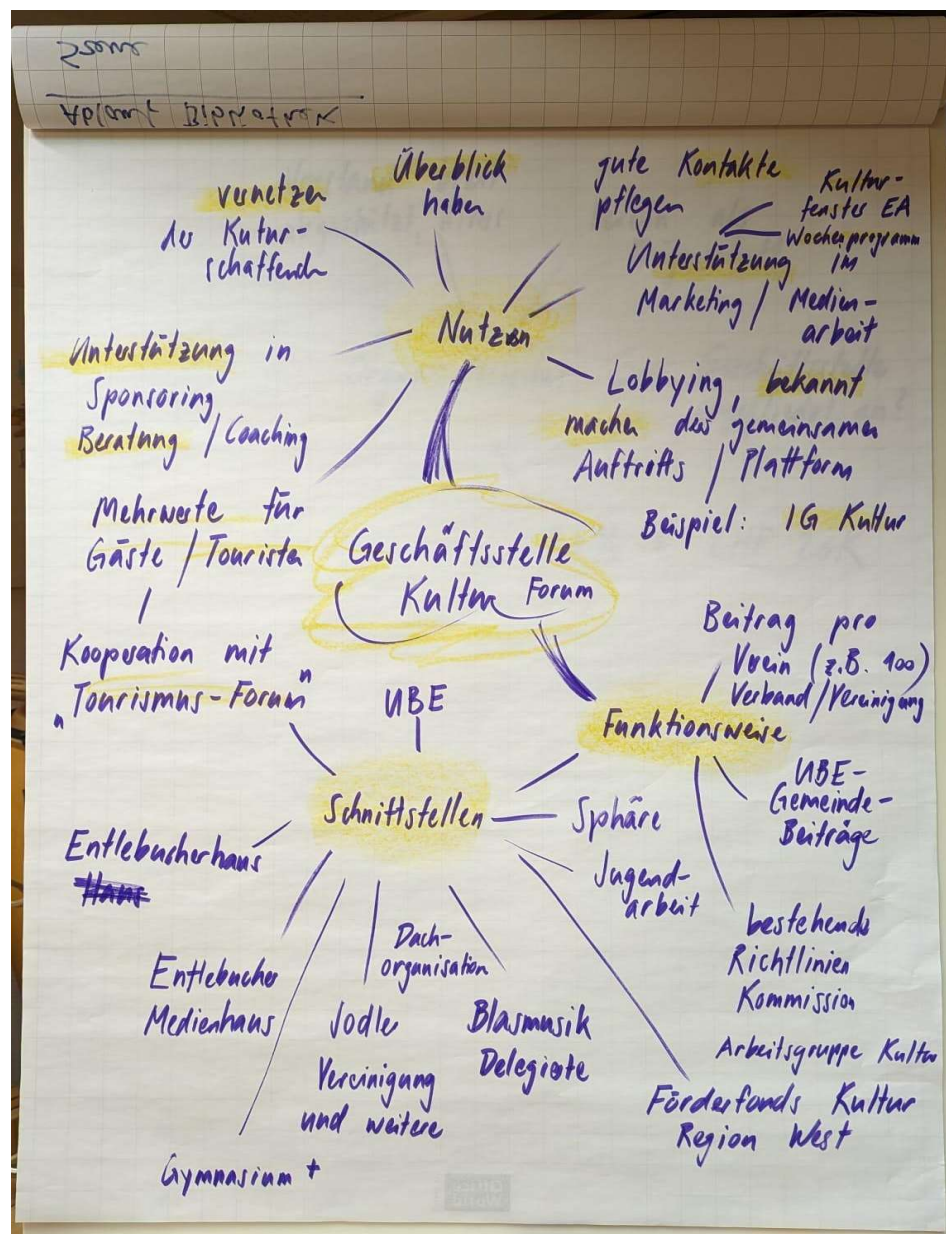 vernetzen
der Kutur-
schaffend
Überblick
haben
gute Kontakte
pflegen
Kultur-
fenster EA
Wochenprogramm
Unterstützung in
Marketing / Medien-
arbeit
Nutzen
Unterstützung in
Sponsoring
Beratung / Coaching
Lobbying, bekannt
machen des gemeinsamen
Auftritts / Plattform
Beispiel: IG Kultur
Mehrwerte für
Gäste / Touristen
Kooperation mit
"Tourismus-Forum"
Geschäftsstelle
Kultur Forum
Beitrag pro
Verein (z.B. 100)
Verband/Vereinigung
Funktionsweise
UBE-
Gemeinde-
Beiträge
bestehende
Richtlinien
Kommission
Arbeitsgruppe Kultur
UBE
Schnittstellen
Sphäre
Jugend-
arbeit
Entlebucherhaus
Haus
Entlebucher
Medienhaus
Dach-
organisation
Jodler
Vereinigung
und weitere
Blasmusik
Delegierte
Förderfonds Kultur
Region West
Gymnasium +